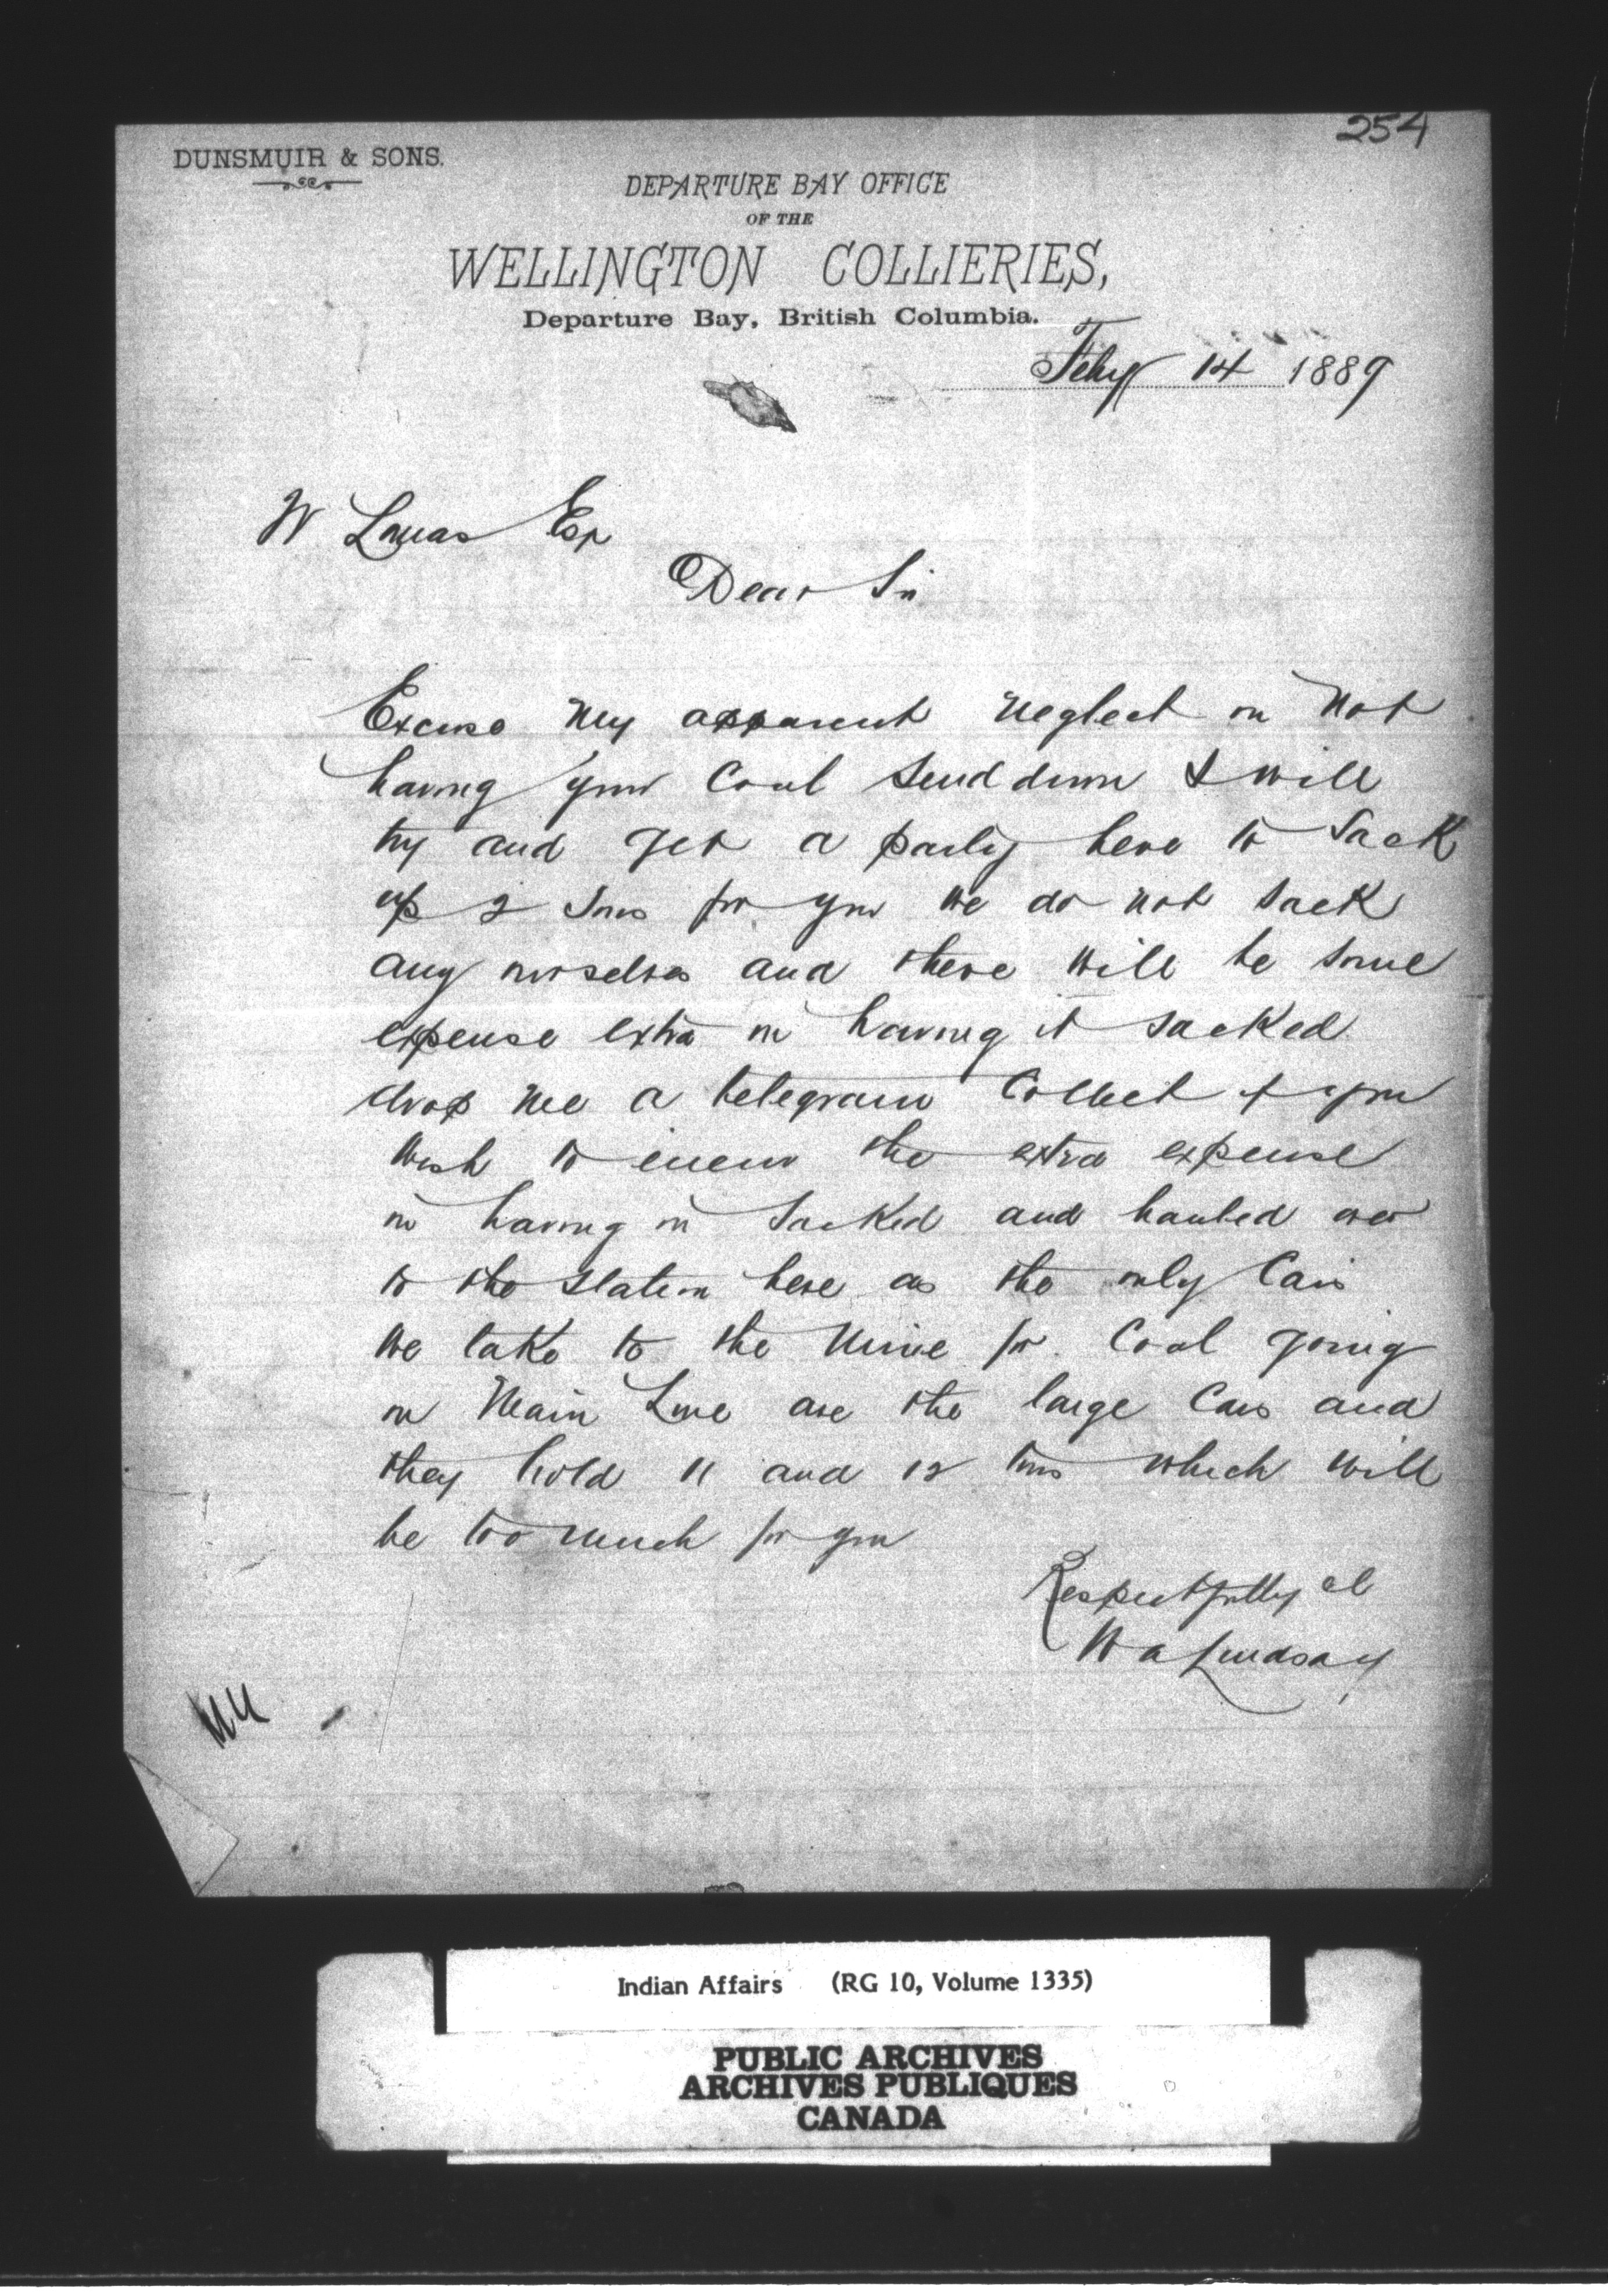 254
DUNSMUIR & SONS.
DEPARTURE BAY OFFICE
OF THE
WELLINGTON COLLIERIES,
Departure Bay, British Columbia.
Feby 14 1889
W Esq
Dear Sir
Excuse my apparent neglect in not
having your Coal send down I will
try and get a party here to Sack
up 2 Tons for you we do not sack
any ourselves and there will be some
expense extra in having it sacked
drop me a telegram Collect if you
wish to incur the extra expense
in having in Sacked and hauled over
to the Station here as the only Cars
we take to the mine for Coal going
on Main Line are the large Cars and
they hold 11 and 12 tons which will
be too much for you
Respectfully
W A Lindsay
Indian Affairs (RG 10, Volume 1335)
PUBLIC ARCHIVES
ARCHIVES PUBLIQUES
CANADA